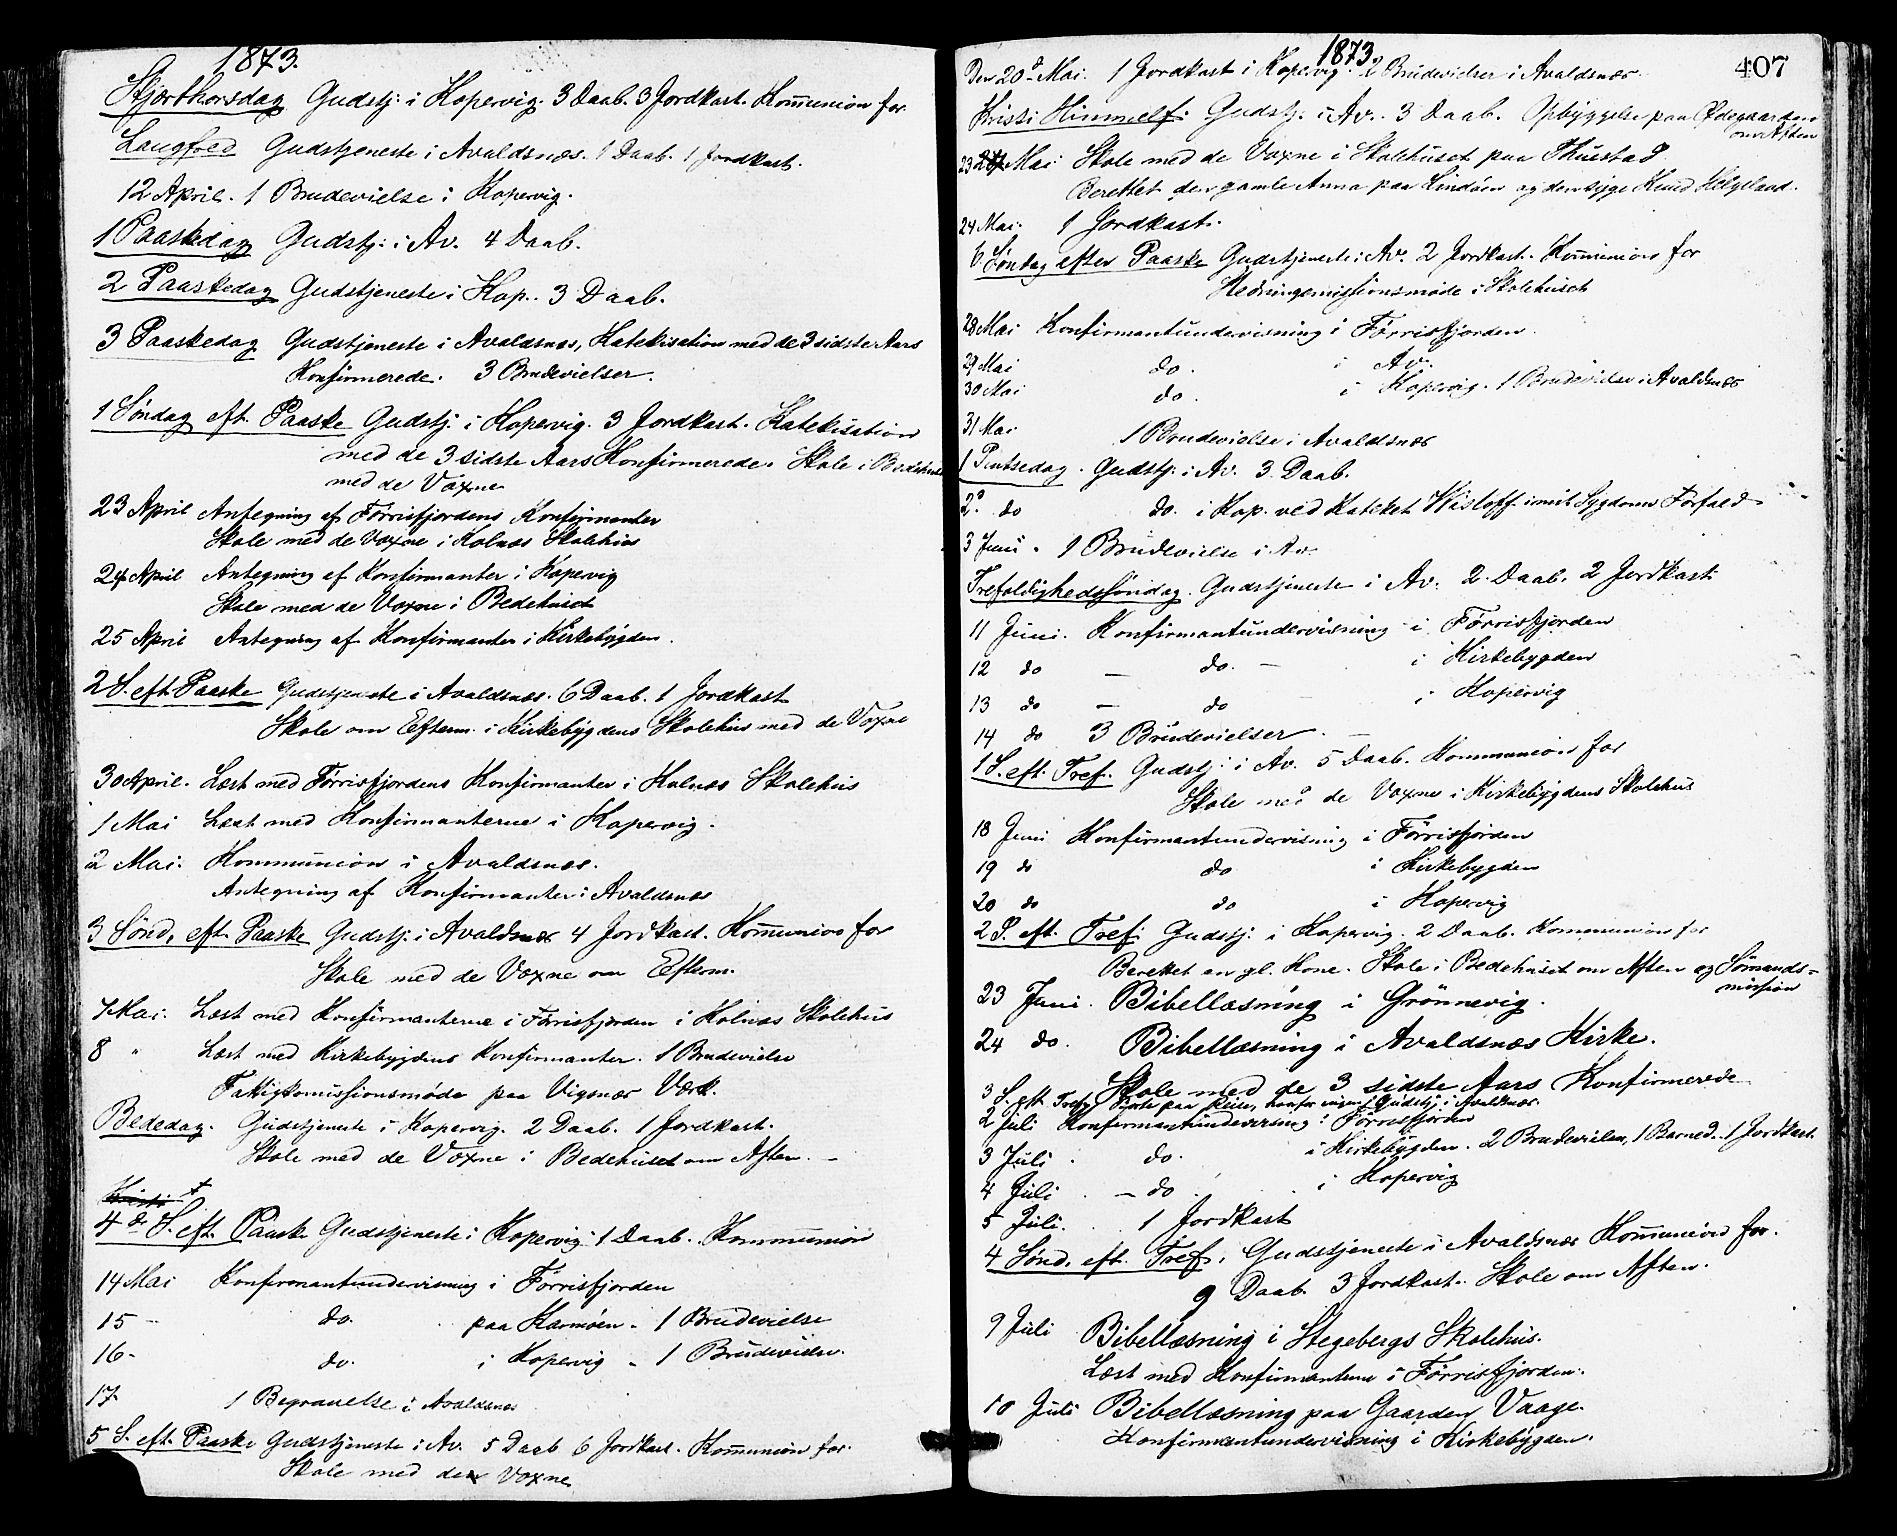 1873.
Skjærthorsdag Gudstj: i Kopervig. 3 Daab. 3 Jordkast. Kommunion for
Langfred Gudstjeneste i Avaldsnæs. 1 Daab. 1 Jordkast.
12 April. 1 Brudevielse i Kopervig.
1 Paaskedag Gudstj: i Av. 4 Daab.
2 Paaskedag Gudstjeneste i Kop. 3 Daab.
3 Paaskedag Gudstjeneste i Avaldsnæs, Katekisation med de 3 sidste Aars
Konfirmerede. 3 Brudevielser.
1 Søndag eft. Paaske Gudstj. i Kopervig. 3 Jordkast. Katekisation
med de 3 sidste Aars Konfirmerede. Skole i Bedehuset
med de Voxne
23 April Antegning af Førrisfjordens Konfirmanter
Skole med de Voxne i Kolnæs Skolehus
24 April Antegning af Konfirmanter i Kopervig
Skole med de Voxne i Bedehuset
25 April Antegning af Konfirmanter i Kirkebygden.
2 S. eft. Paaske Gudstjeneste i Avaldsnæs. 6 Daab. 1 Jordkast
Skole om Efterm. i Kirkebygdens Skolehus med de Voxne
30 April. Læst med Førrisfjordens Konfirmanter i Kolnæs Skolehus
1 Mai Læst med Konfirmanterne i Kopervig.
2 Mai. Kommunion i Avaldsnæs.
Antegning af Konfirmanter i Avaldsnæs
3 Sønd. eft. Paaske Gudstj: i Avaldsnæs 4 Jordkast. Kommunion for
Skole med de Voxne om Efterm.
7 Mai. Læst med Konfirmanterne i Førrisfjorden i Kolnæs Skolehus
8 " Læst med Kirkebygdens Konfirmanter. 1 Brudevielse
Fattigkommissionsmøde paa Vigsnæs Værk.
Bededag. Gudstjeneste i Kopervig. 2 Daab. 1 Jordkast.
Skole med de Voxne i Bedehuset om Aften. –
Kristi
4de S. eft. Paaske Gudstjeneste i Kopervig. 1 Daab. Kommunion
14 Mai Konfirmantundervisning i Førrisfjorden
15 – do. paa Karmøen. 1 Brudevielse
16 – do. i Kopervig – 1 Brudevielse.
17. 1 Begravelse i Avaldsnæs
5 S. eft. Paaske Gudstjeneste i Av. 5 Daab 6 Jordkast. Kommunion for.
Skole med de Voxne
1873.
407
Den 20de Mai. 1 Jordkast i Kopervig. 2 Brudevielser i Avaldsnæs.
Kristi Himmelf: Gudstj. i Av. 3 Daab. Opbyggelse paa Ødegaarden
om Aften
23 Mai: Skole med de Voxne i Skolehuset paa Thuestad
Berettet den gamle Anna paa Lindøen og den syge Knud Helgeland.
24 Mai. 1 Jordkast.
6. Søndag efter Paaske Gudstjeneste i Av. 2 Jordkast. Kommunion for
Hedningemissionsmøde i Skolehuset
28 Mai Konfirmantundervisning i Førrisfjorden.
29 Mai do. i Av.
30 Mai do. i Kopervig. 1 Brudevielse i Avaldsnæs
31 Mai 1 Brudevielse i Avaldsnæs
1 Pintsedag. Gudstj: i Av. 3. Daab.
2d do do. i Kop. ved Kateket Wisloff i mit Sygdoms Forfald
3 Juni. 1 Brudevielse i Av.
Trefoldighedssøndag. Gudstjeneste i Av. 2 Daab. 2 Jordkast
11 Juni. Konfirmantundervisning i Førrisfjorden
12 do – do. – i Kirkebygden
13 do – do i Kopervig
14 do 3 Brudevielser. –
1 S. eft. Tref. Gudstj: i Av. 5 Daab. Kommunion for
Skole med de Voxne i Kirkebygdens Skolehus
18 Juni Konfirmantundervisning i Førrisfjorden
19 do do i Kirkebygden
20 do do i Kopervig
2 S. eft. Tref. Gudstj. i Kopervig. 2 Daab. Kommunion for
Berettet en gl. Kone. Skole i Bedehuset om Aften og Sømands-
mission
23 Juni. Bibellæsning i Grønnevig.
24 do. Bibellæsning i Avaldsnæs Kirke.
Skole med de 3 sidste Aars Konfirmerede
3 S. eft. Tref. paa Reise, Gudstj. i Avaldsnæs.
2 Juli Konfirmantundervisning i Førrisfjorden
3 Juli. do. i Kirkebygden. 2 Brudevielser, 1 Barned. 1 Jordkast.
4 Juli. – do i Kopervig
5 Juli. 1 Jordkast
4 Sønd. eft. Tref. Gudstjeneste i Avaldsnæs Kommunion for.
9 Daab. 3 Jordkast. Skole om Aften.
9 Juli Bibellæsning i Stegebergs Skolehus.
Læst med Konfirmanterne i Førrisfjorden.
10 Juli Bibellæsning paa Gaarden Vaage.
Konfirmantundervisning i Kirkebygden.